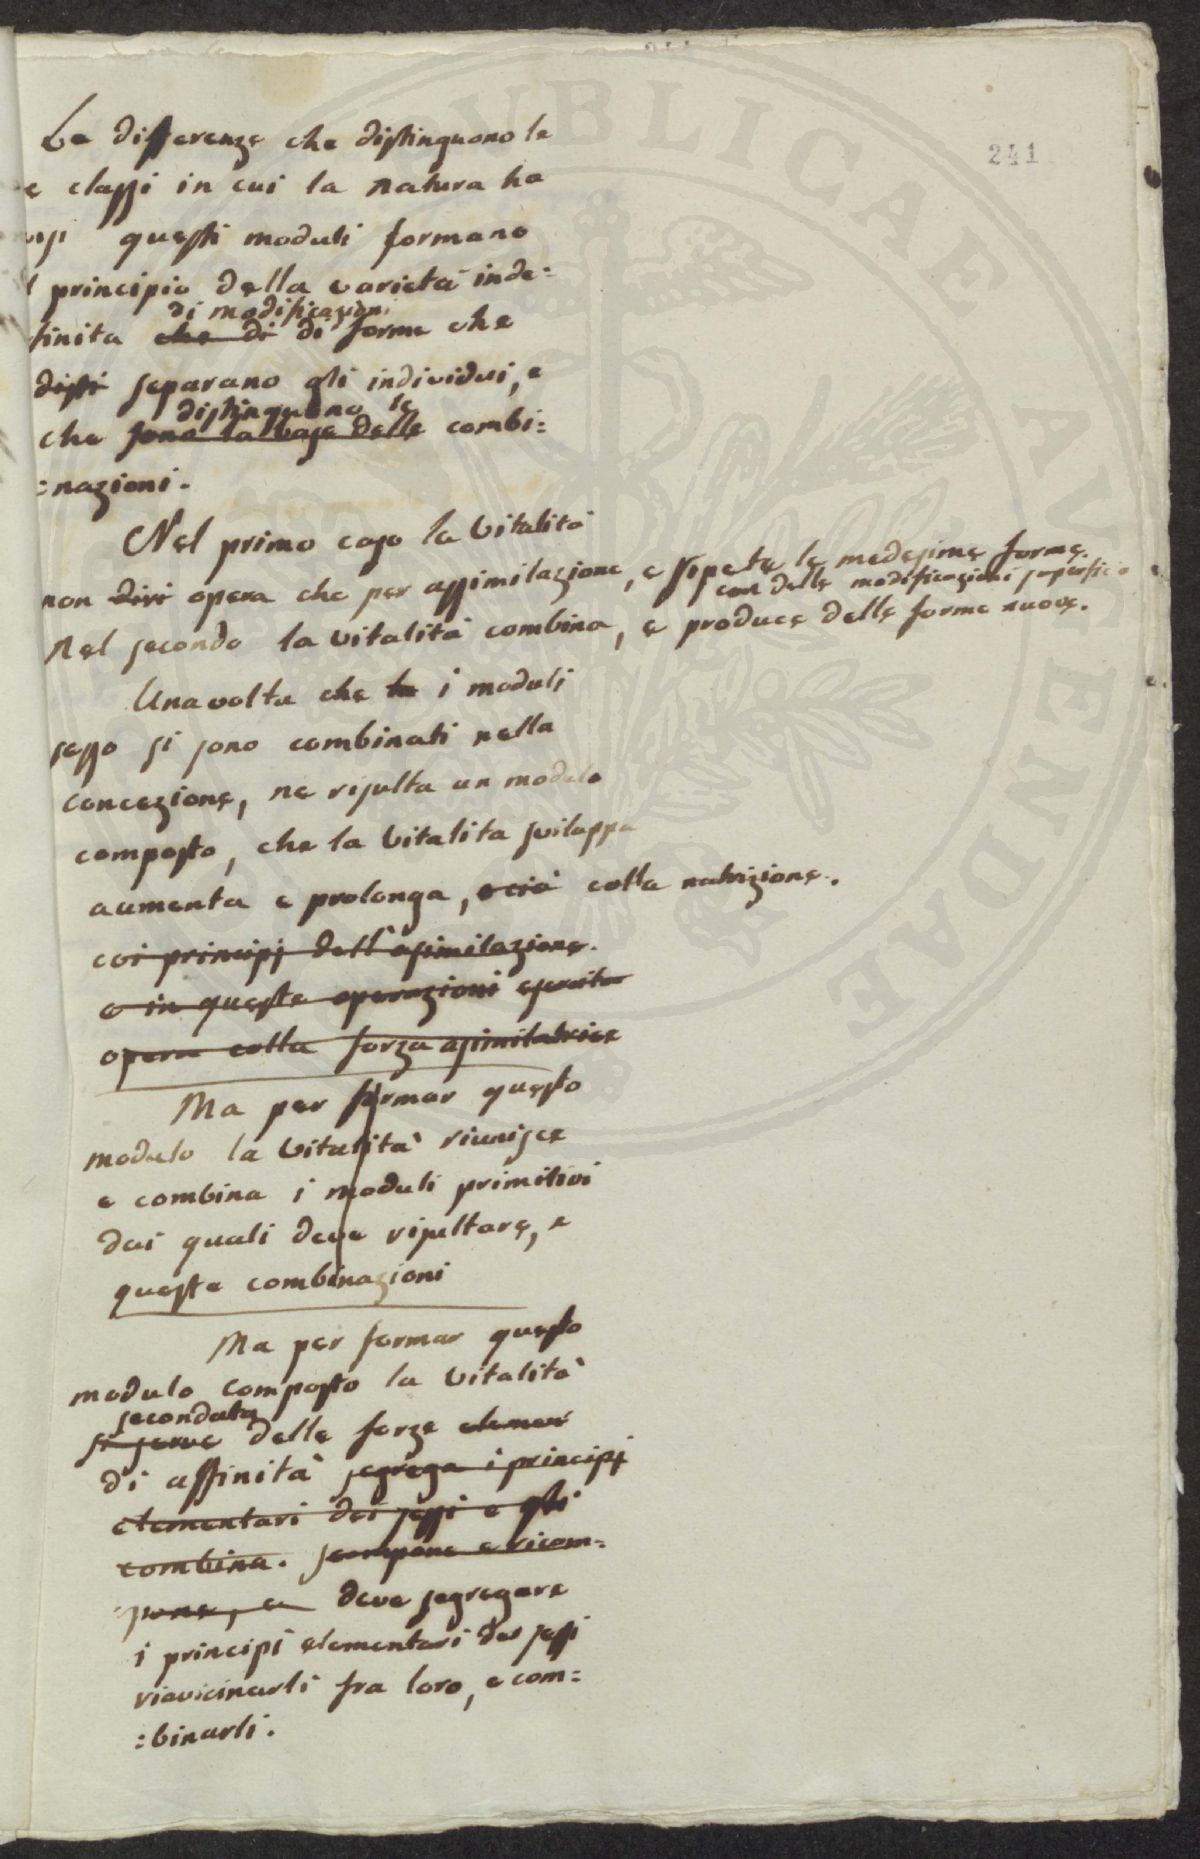 241
Le differenze che distinguono le
e classi in cui la natura ha
questi moduli formano
l principio della varietà inde=
di modificazioni
finita che di di forme che
disti separano gli individui, e
distinguono le
che sono la base delle combi=
=nazioni.
Nel primo caso la vitalità
non diri opera che per assimilazione, e ripete le medesime forme.
con delle modificazioni superficia
Nel secondo la vitalità combina, e produce delle forme nuove.
Una volta che la i moduli
sesso si sono combinati nella
concezione, ne risulta un modulo
composto, che la vitalita sviluppa
aumenta e prolonga, e ciò colla nutrizione.
coi principj dell'asimilazione.
e in queste operazioni esercita
opera colla forza asimilatrice
Ma per formar questo
modulo la vitalità riunisce
e combina i moduli primitivi
dai quali deve risultare, e
queste combinazioni
Ma per formar questo
modulo composto la vitalità
secondata
si serve delle forze elemen
di affinità segrega i principj
elementari dei sessi e gli
combina. scompone e ricom=
pone, e deve segregare
i principi elementari dei sessi
riavicinarli fra loro, e com=
=binarli.